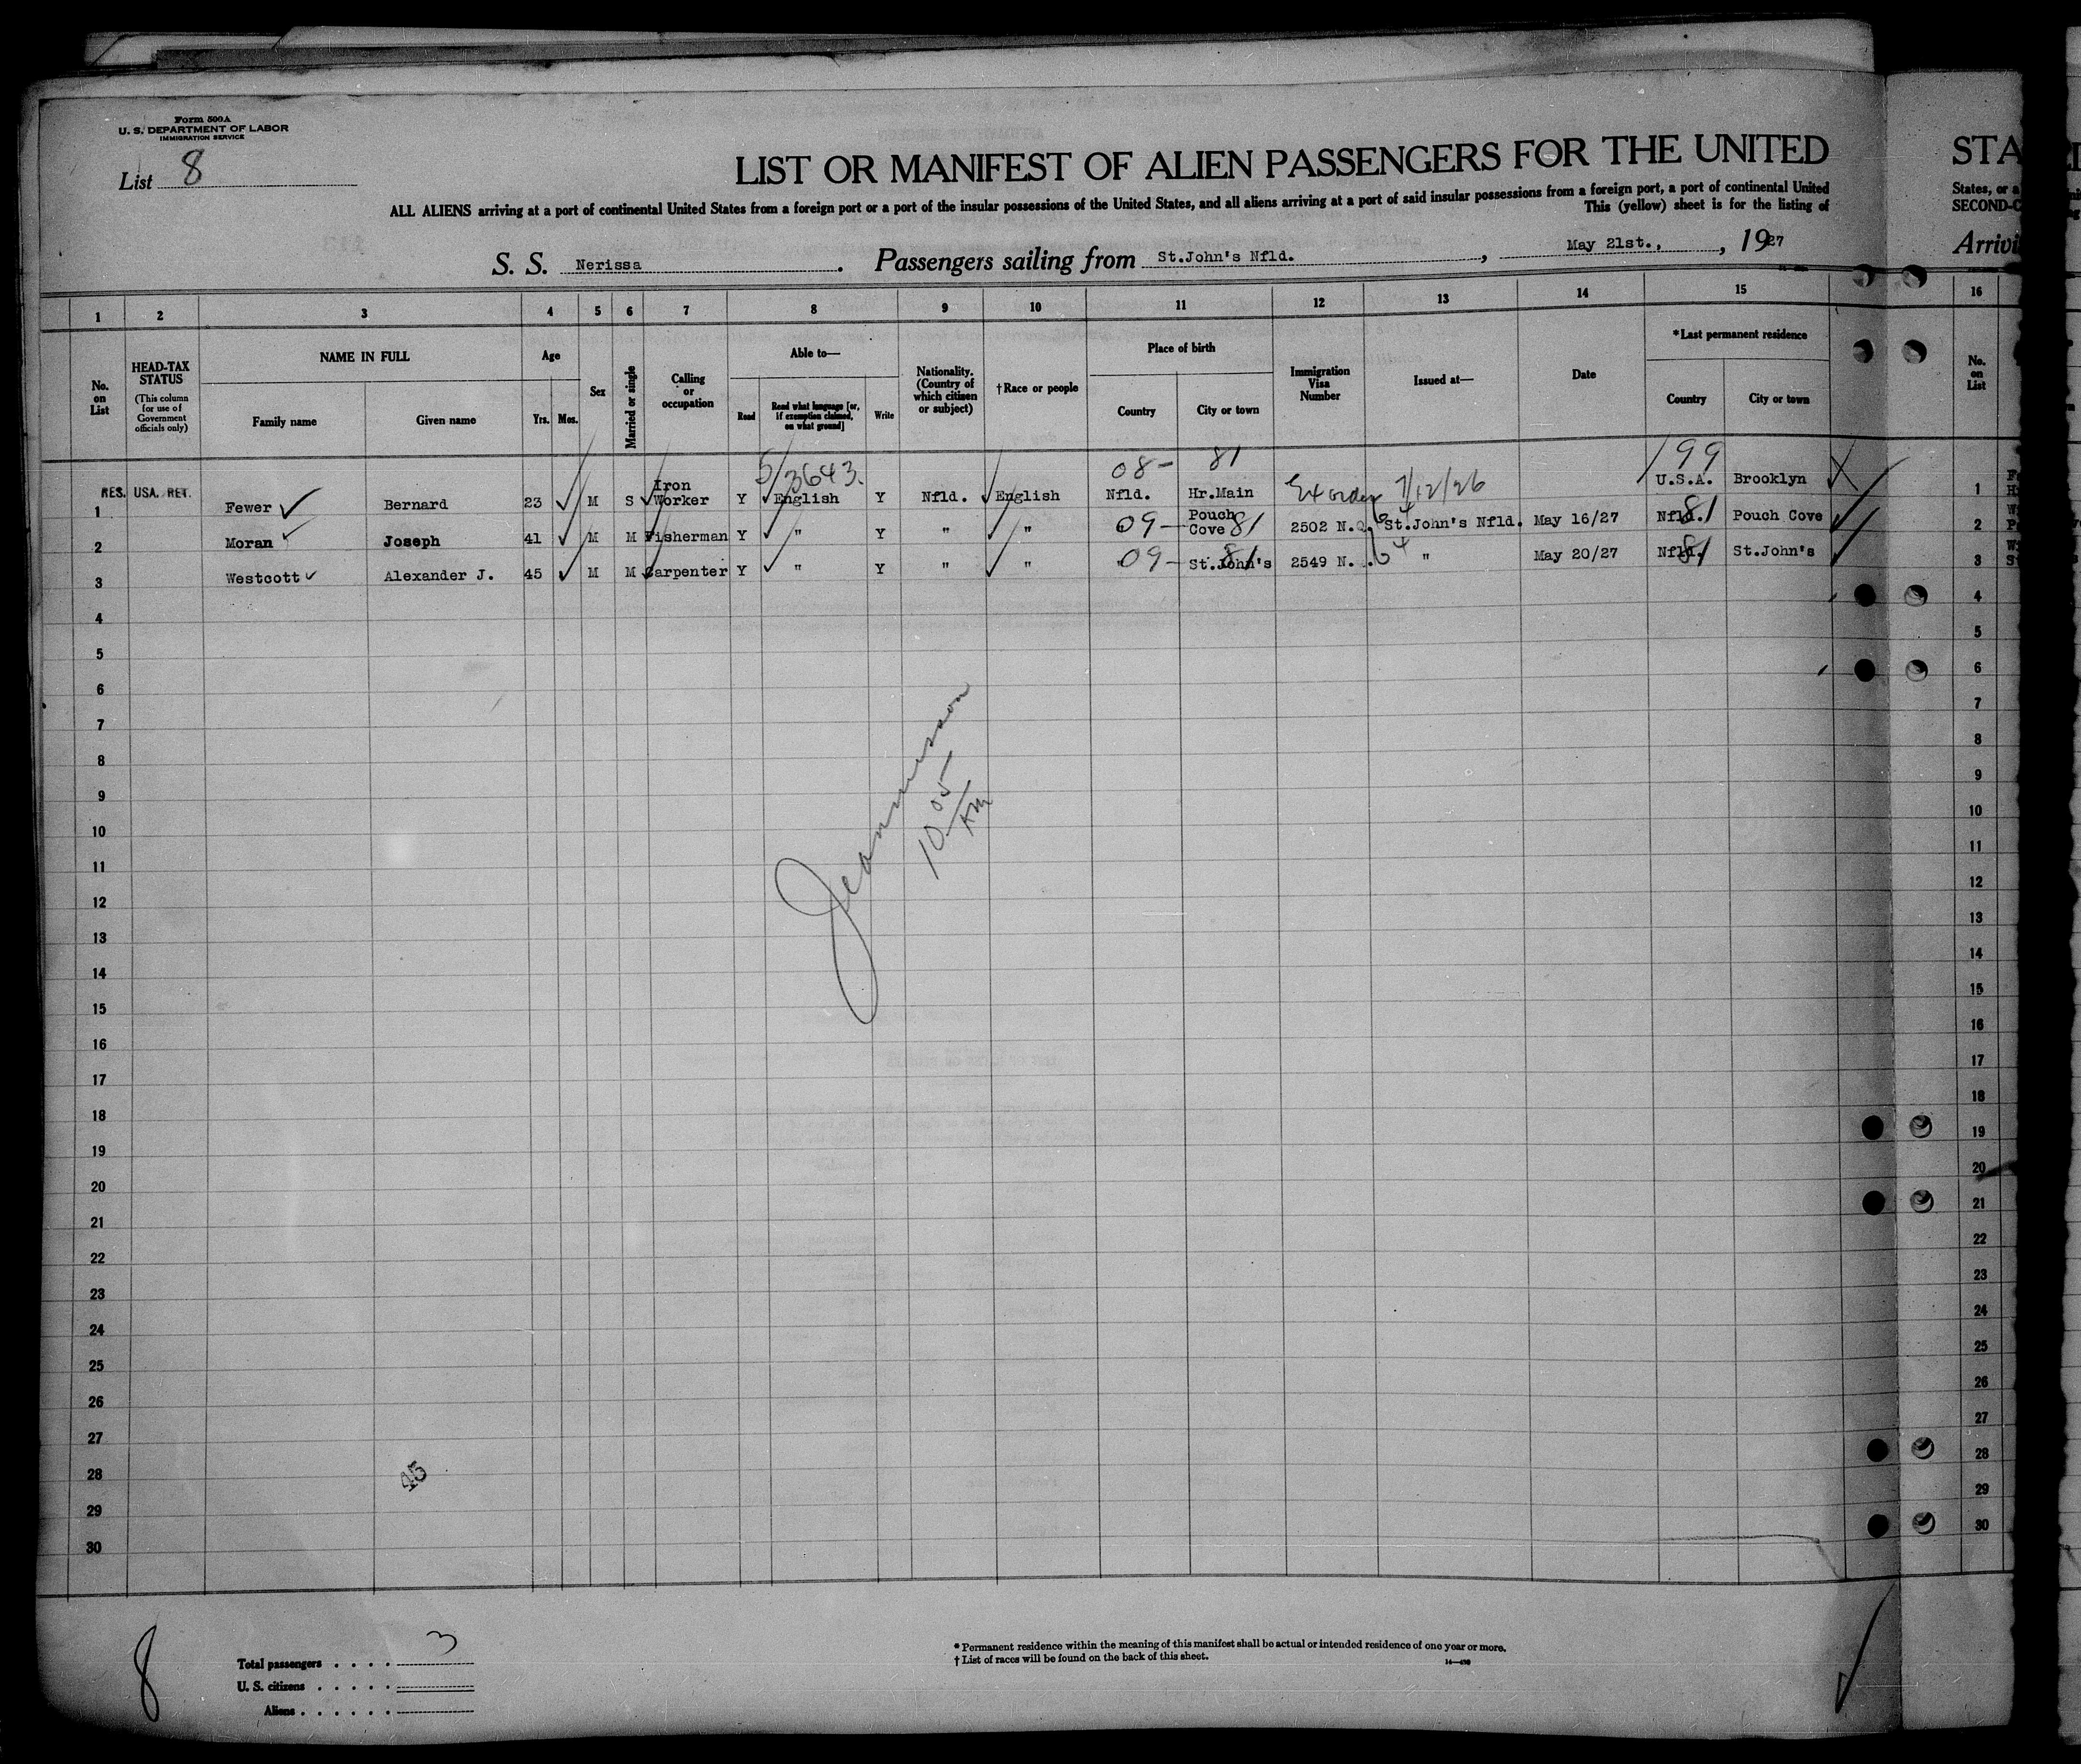 Form 500A
U. S. DEPARTMENT OF LABOR
IMMIGRATION SERVICE
List 8
LIST OR MANIFEST OF ALIEN PASSENGERS FOR THE UNITED
STA
ALL ALIENS arriving at a port of continental United States from a foreign port or a port of the insular possessions of the United States, and all aliens arriving at a port of said insular possessions from a foreign port, a port of continental United
States, or a
This (yellow) sheet is for the listing of
SECOND-C
S. S. Nerissa. Passengers sailing from St.John's Nfld., May 21st., , 1927
Arrivi
1 2 3 4 5 6 7 8 9 10 11 12 13 14 15 16
No. on List
HEAD-TAX STATUS
(This column for use of Government officials only)
NAME IN FULL
Family name Given name
Age
Yrs. Mos.
Sex
Married or single
Calling or occupation
Able to—
Read
Read what language [or, if exemption claimed, on what ground]
Write
Nationality. (Country of which citizen or subject)
†Race or people
Place of birth
Country City or town
Immigration Visa Number
Issued at—
Date
*Last permanent residence
Country City or town
No. on List
5/3643. 08- 81 199
RES. USA. RET.
1 Fewer Bernard 23 M S Iron Worker Y English Y Nfld. English Nfld. Hr.Main 7/12/26 U.S.A. Brooklyn 1
2 Moran Joseph 41 M M Fisherman Y " Y " " 09- Pouch Cove 81 2502 N.Q. St.John's Nfld. May 16/27 Nfld. 81 Pouch Cove 2
3 Westcott Alexander J. 45 M M Carpenter Y " Y " " 09- St.John's 81 2549 N. " May 20/27 Nfld. 81 St.John's 3
4 4
5 5
6 6
7 7
8 8
9 9
10 10
11 11
12 12
13 13
14 14
15 15
16 16
17 17
18 18
19 19
20 20
21 21
22 22
23 23
24 24
25 25
26 26
27 27
28 28
29 29
30 30
10 05 AM
45
8
Total passengers . . . . 3
U. S. citizens . . . . .
Aliens . . . . . .
* Permanent residence within the meaning of this manifest shall be actual or intended residence of one year or more.
† List of races will be found on the back of this sheet.